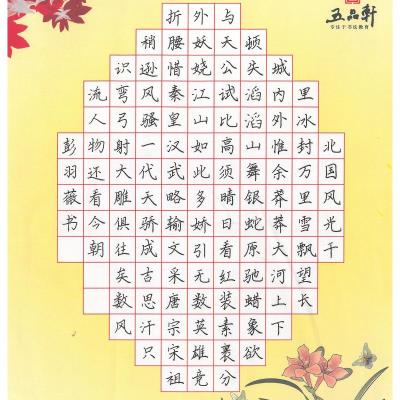 五品軒
专注于书法教育
北国风光千
里冰封万里雪飘望长
城内外惟余莽莽大河上下
顿失滔滔山舞银蛇原驰蜡象欲
与天公试比高须晴日看红装素裹分
外妖娆江山如此多娇引无数英雄竞
折腰惜秦皇汉武略输文采唐宗宋祖
稍逊风骚一代天骄成古思汗只
识弯弓射大雕俱往矣数风
流人物还看今朝
彭羽薇书